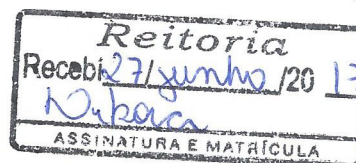 Reitoria
Recebi 27/junho/20 17
ASSINATURA E MATRÍCULA